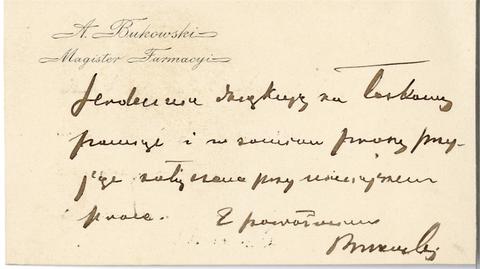 A. Bukowski
Magister Farmacyi
Serdecznie dziękuję za łaskawą
pamięć i w zamian proszę przy-
jąć załączone przy niniejszem
prace. Z poważaniem